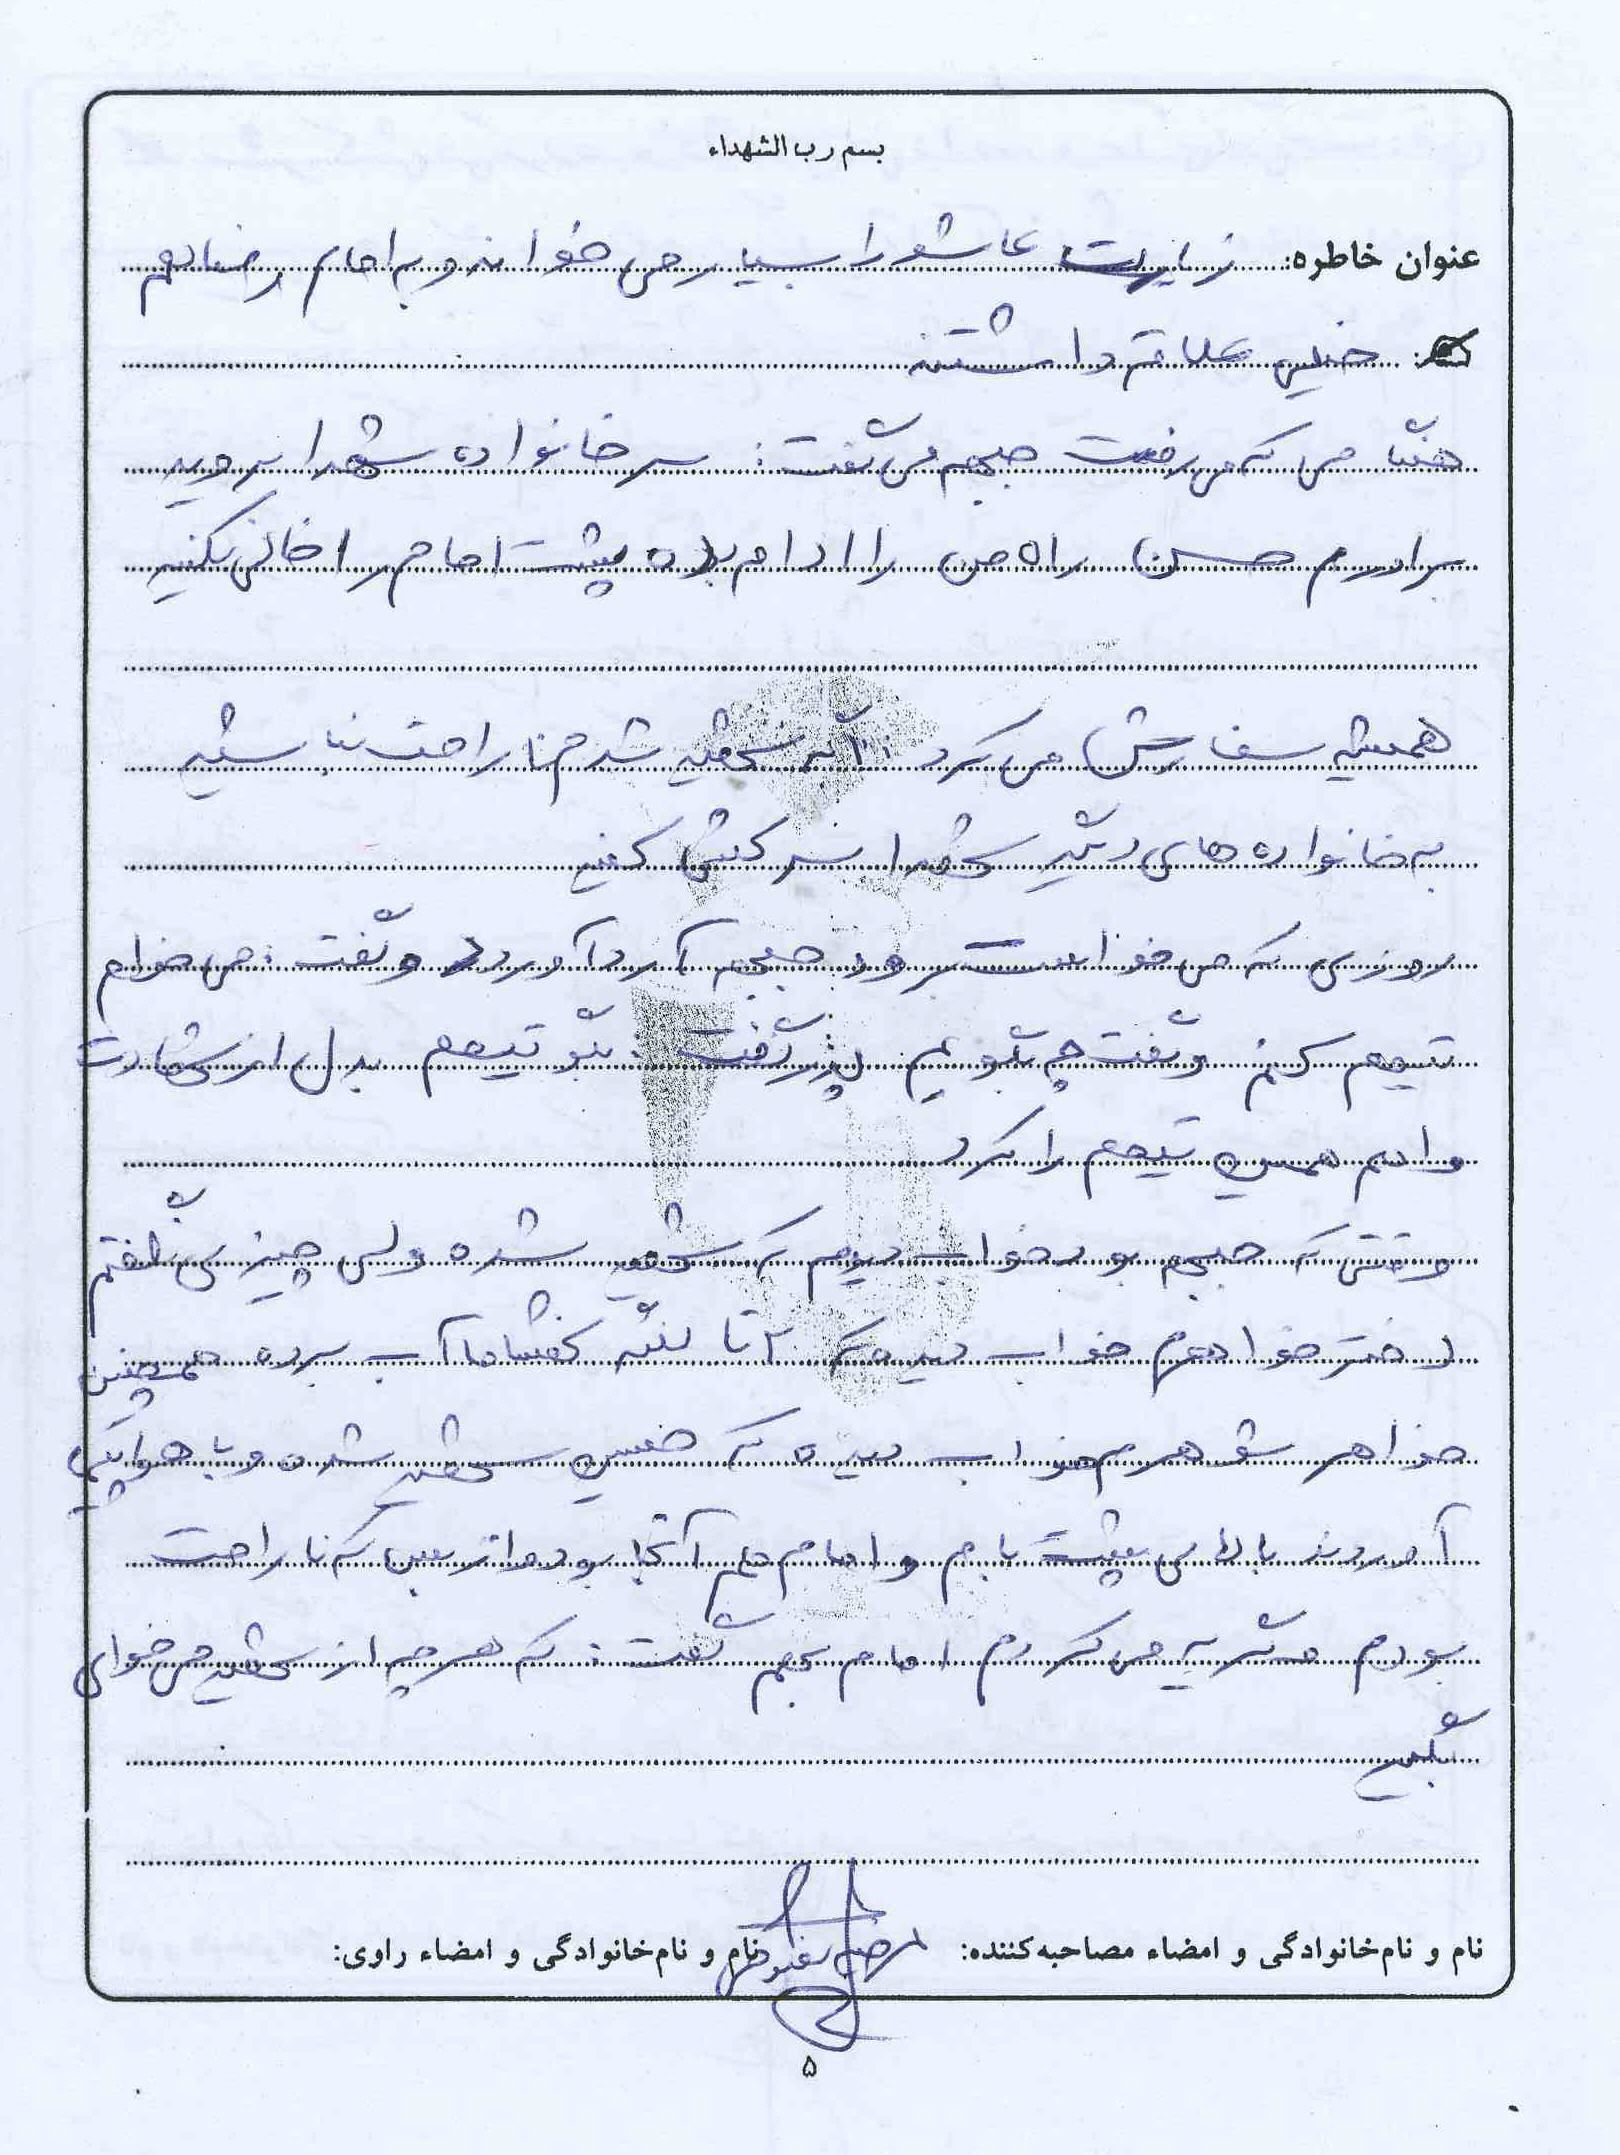 بسم رب الشهداء
عنوان خاطره: زیارت عاشورا بسیار می خواندو به امام رضا هم
خیلی علاقه داشتند
هنگامی که می رفت جبهه می گفت: سر خانواده شهدا بروید
برادرم حسن راه من را ادامه بده پشت امام را خالی نکنید
همیشه سفارش می کرد: اگه شهید شدم ناراحت نباشید
به خانواده های دیگر شهدا سر کشی کنید
روزی که می خواست برود جبهه آرد آورد و گفت: می خوام
تیمم کنم و گفت چه بگویم پدر گفت: بگو تیمم بدل از شهادت
و اسم همین تیمم را کرد
وقتی که جبهه بود خواب دیدم که شهید شده ولی چیزی نگفتم
دختر خواهرم خواب دیده که ۲ تا لنگه کفشاما آب برده همچنین
خواهر شوهرم خواب دیده که حسین شهید شده و با هواپیما
آوردند بالای پشت بام و امام هم آنجا بود از بس که ناراحت
بودم و گریه می کردم امام بهم گفت: که هر چه از شهید می خوای
بگیر
نام و نام خانوادگی و امضاء مصاحبه کننده: نام و نام خانوادگی و امضاء راوی:
۵